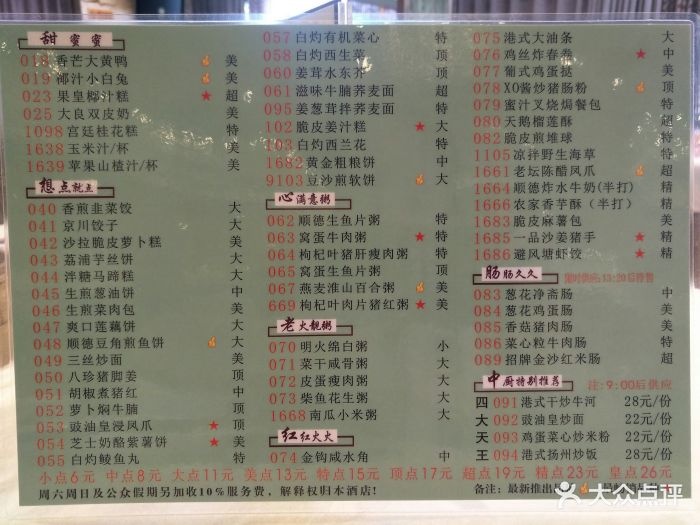 甜蜜蜜
018 香芒大黄鸭 美
019 椰汁小白兔 美
023 果皇椰汁糕 ★ 超
025 大良双皮奶 美
1098 宫廷桂花糕 特
1638 玉米汁/杯 美
1639 苹果山楂汁/杯 美
想点就点
040 香煎韭菜饺 大
041 京川饺子 大
042 沙拉脆皮萝卜糕 美
043 荔浦芋丝饼 大
044 泮糖马蹄糕 大
045 生煎葱油饼 中
046 生煎菜肉包 美
047 爽口莲藕饼 大
048 顺德豆角煎鱼饼 大
049 三丝炒面 美
050 八珍猪脚姜 顶
051 胡椒煮猪红 中
052 萝卜焖牛腩 顶
053 豉油皇浸凤爪 ★ 顶
054 芝士奶酪紫薯饼 美
055 白灼鲮鱼丸 特
057 白灼有机菜心 特
058 白灼西生菜 顶
060 姜茸水东芥 顶
061 滋味牛腩荞麦面 超
095 姜葱茸拌荞麦面 特
102 脆皮姜汁糕 ★ 大
103 白灼西兰花 特
1682 黄金粗粮饼 中
9103 豆沙煎软饼 大
心满意粥
062 顺德生鱼片粥 特
063 窝蛋牛肉粥 ★ 特
064 枸杞叶猪肝瘦肉粥 特
065 窝蛋生鱼片粥 顶
067 燕麦淮山百合粥 美
669 枸杞叶肉片猪红粥 ★ 美
老火靓粥
070 明火绵白粥 小
071 菜干咸骨粥 大
072 皮蛋瘦肉粥 大
073 柴鱼花生粥 大
1668 南瓜小米粥 大
红红火火
074 金钩咸水角 中
075 港式大油条 大
076 鸡丝炸春卷 ★ 中
077 葡式鸡蛋挞 美
078 XO酱炒猪肠粉 顶
079 蜜汁叉烧焗餐包 特
080 天鹅榴莲酥 超
082 脆皮煎堆球 特
1105 凉拌野生海草 特
1661 老坛陈醋凤爪 超
1664 顺德炸水牛奶(半打) 精
1666 农家香芋酥（半打） 精
1683 脆皮麻薯包 美
1685 一品沙姜猪手 ★ 精
1686 避风塘虾饺 ★ 精
肠肠久久
限时供应:13:20后停售
083 葱花净斋肠 中
084 葱花鸡蛋肠 美
085 香菇猪肉肠 美
086 菜心粒牛肉肠 特
089 招牌金沙红米肠 超
中厨特别推荐 注:9:00后供应
四 091 港式干炒牛河 28元/份
大 092 豉油皇炒面 22元/份
天 093 鸡蛋菜心炒米粉 22元/份
王 094 港式扬州炒饭 28元/份
小点6元 中点8元 大点11元 美点13元 特点15元 顶点17元 超点19元 精点23元 皇点26元
周六周日及公众假期另加收10%服务费，解释权归本酒店!
备注: 最新推出
大众点评